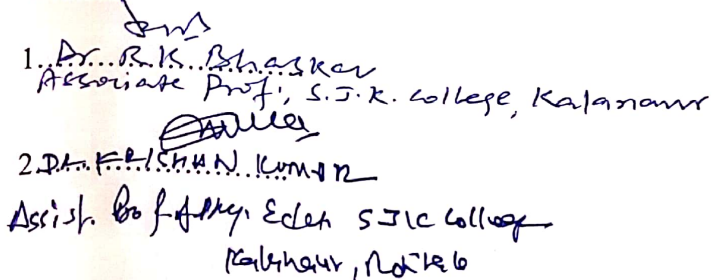 1. Dr. R.K. Bhaskar
Associate Prof., S.J.K. College, Kalanaur
2. Dr. KRISHAN KUMAR
Assist. Prof of Phy. Edu SJK College
Kalanaur, Rohtak